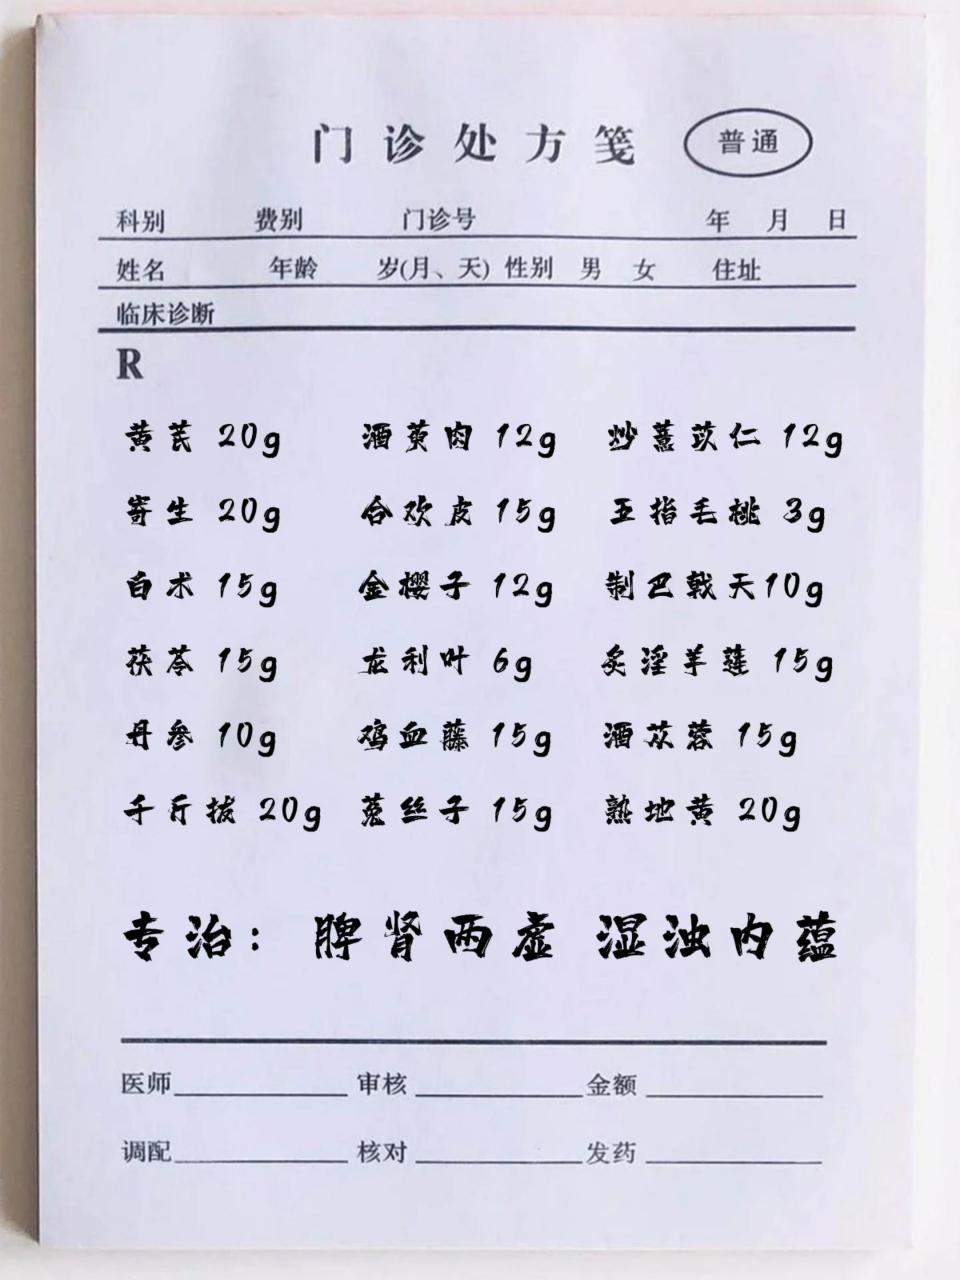 门诊处方笺 普通
科别 费别 门诊号 年 月 日
姓名 年龄 岁(月、天) 性别 男 女 住址
临床诊断
R
黄芪 20g 酒萸肉 12g 炒薏苡仁 12g
寄生 20g 合欢皮 15g 五指毛桃 3g
白术 15g 金樱子 12g 制巴戟天10g
茯苓 15g 龙利叶 6g 炙淫羊藿 15g
丹参 10g 鸡血藤 15g 酒苁蓉 15g
千斤拔 20g 菟丝子 15g 熟地黄 20g
专治：脾肾两虚 湿浊内蕴
医师 审核 金额
调配 核对 发药